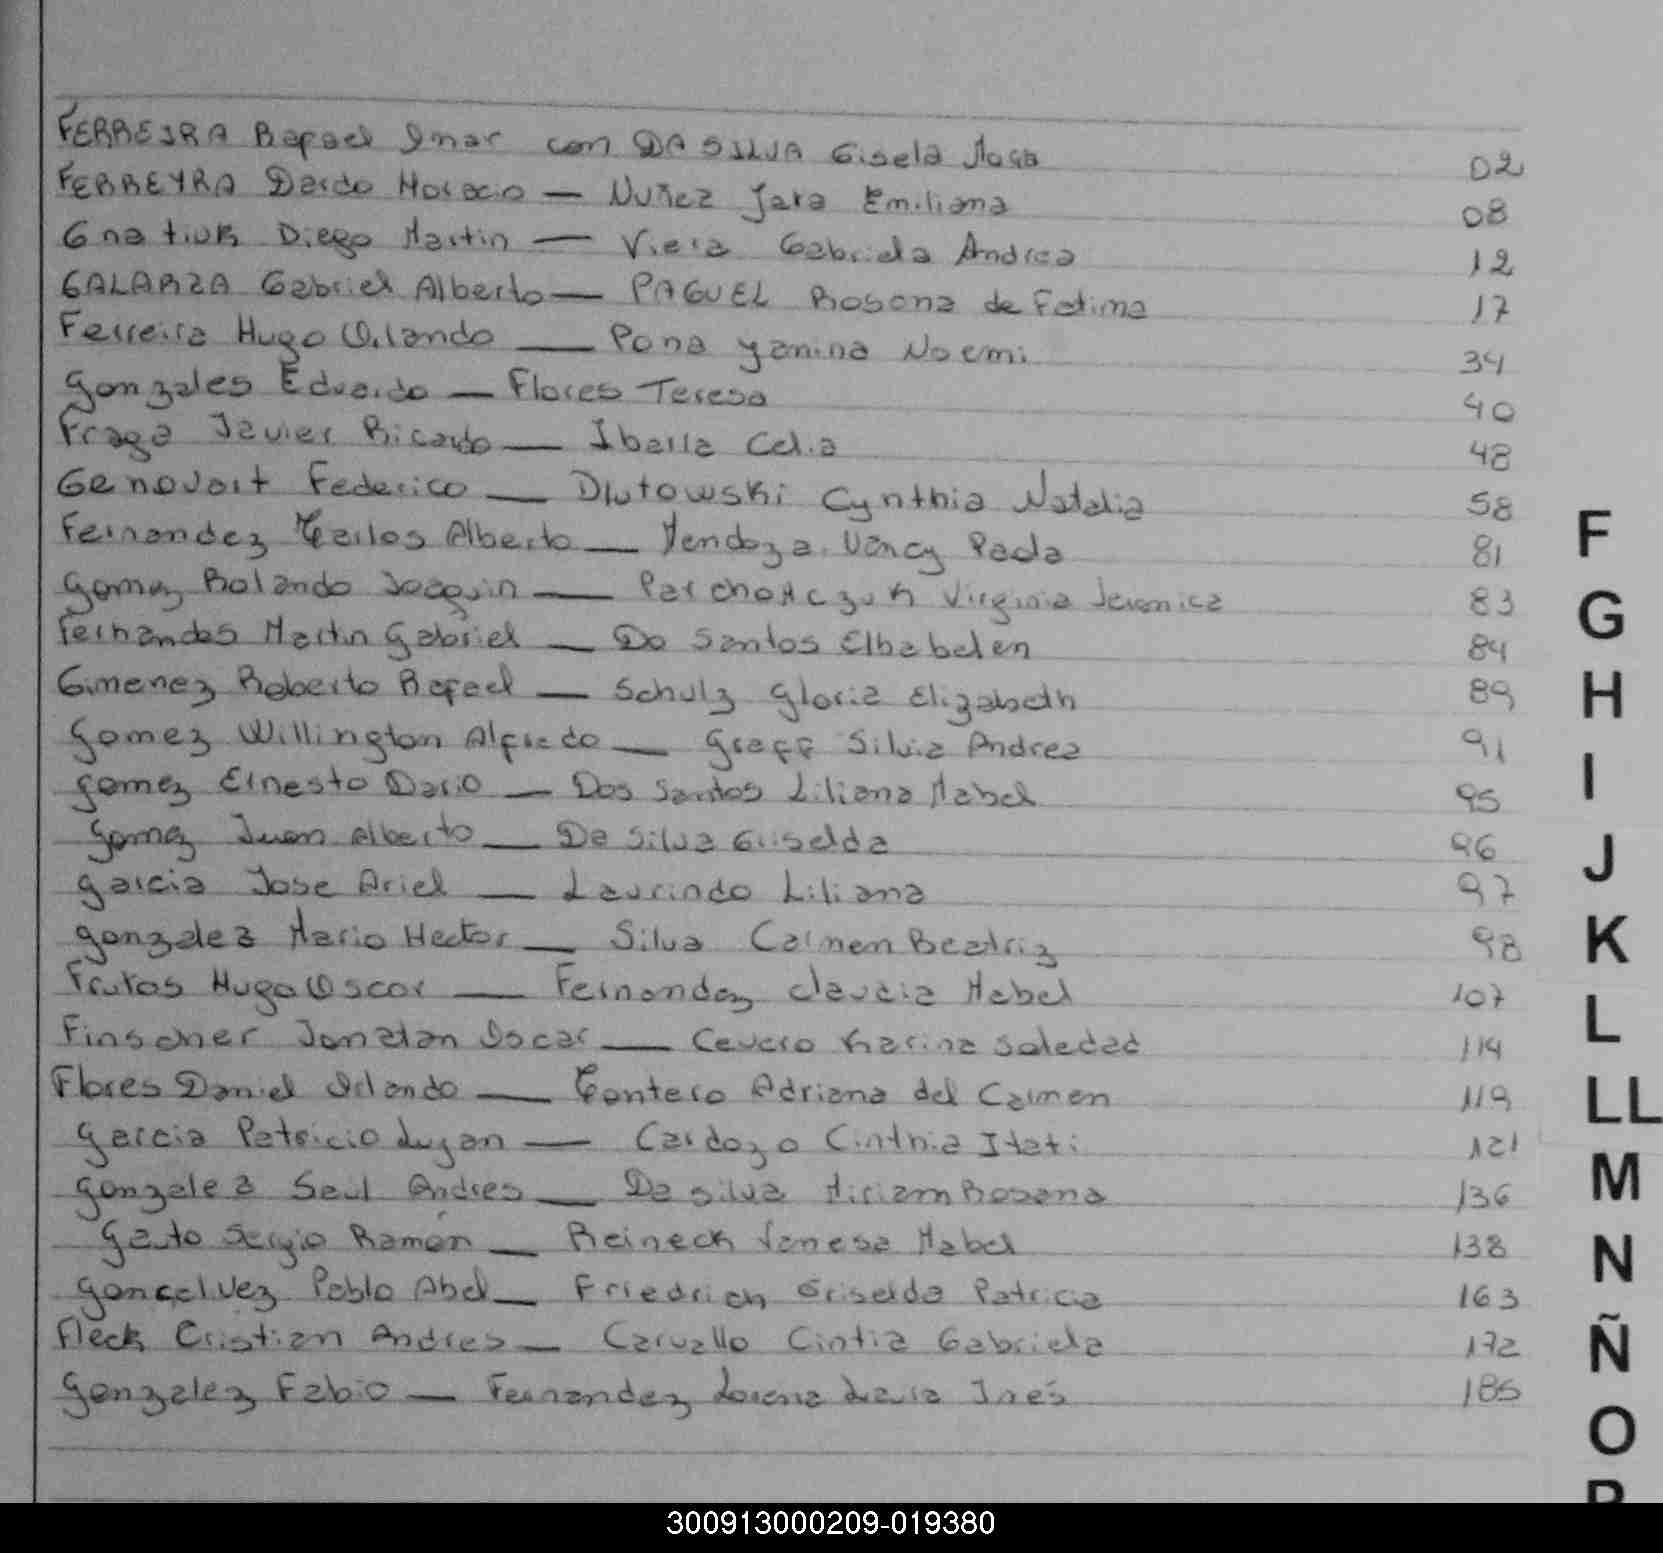 FERREIRA Rafael Imar con DA SILVA Gisela 02
FERREYRA Dardo Horacio — Nuñez Jara Emiliana 08
Gnatiuk Diego Martin — Viera Gabriela Andrea 12
GALARZA Gabriel Alberto — PAGUEL Rosana de Fatima 17
Ferreira Hugo Orlando — Pona Yanina Noemi 34
Gonzales Eduardo — Flores Teresa 40
Fraga Javier Ricardo — Ibarra Celia 48
Federico — Dlutowski Cynthia Natalia 58
Fernandez Carlos Alberto — Mendoza Nancy Paola 81
Gomez Rolando Joaquin — Virginia Veronica 83
Fernandes Martin Gabriel — Do Santos 84
Gimenez Roberto Rafael — Schulz Gloria Elizabeth 89
Gomez Willington Alfredo — Graff Silvia Andrea 91
Gomez Ernesto Dario — Dos Santos Liliana Mabel 95
Gomez Juan Alberto — Da Silva Griselda 96
Garcia Jose Ariel — Laurindo Liliana 97
Gonzalez Mario Hector — Silva Carmen Beatriz 98
Frutos Hugo Oscar — Fernandez Claudia Mabel 107
Finscher Jonatan Oscar — Cevero Karina Soledad 114
Flores Daniel Orlando — Contero Adriana del Carmen 119
Garcia Patricio Lujan — Cardozo Cinthia Itati 121
Gonzalez Saul Andres — Da silva Miriam Rosana 136
Gauto Sergio Ramón — Reineck Vanesa Mabel 138
Goncalvez Pablo Abel — Friedrich Griselda Patricia 163
Fleck Cristian Andres — Carvallo Cintia Gabriela 172
Gonzalez Fabio — Fernandez Lorena Laura Inés 185
F
G
H
I
J
K
L
LL
M
N
Ñ
O
P
300913000209-019380